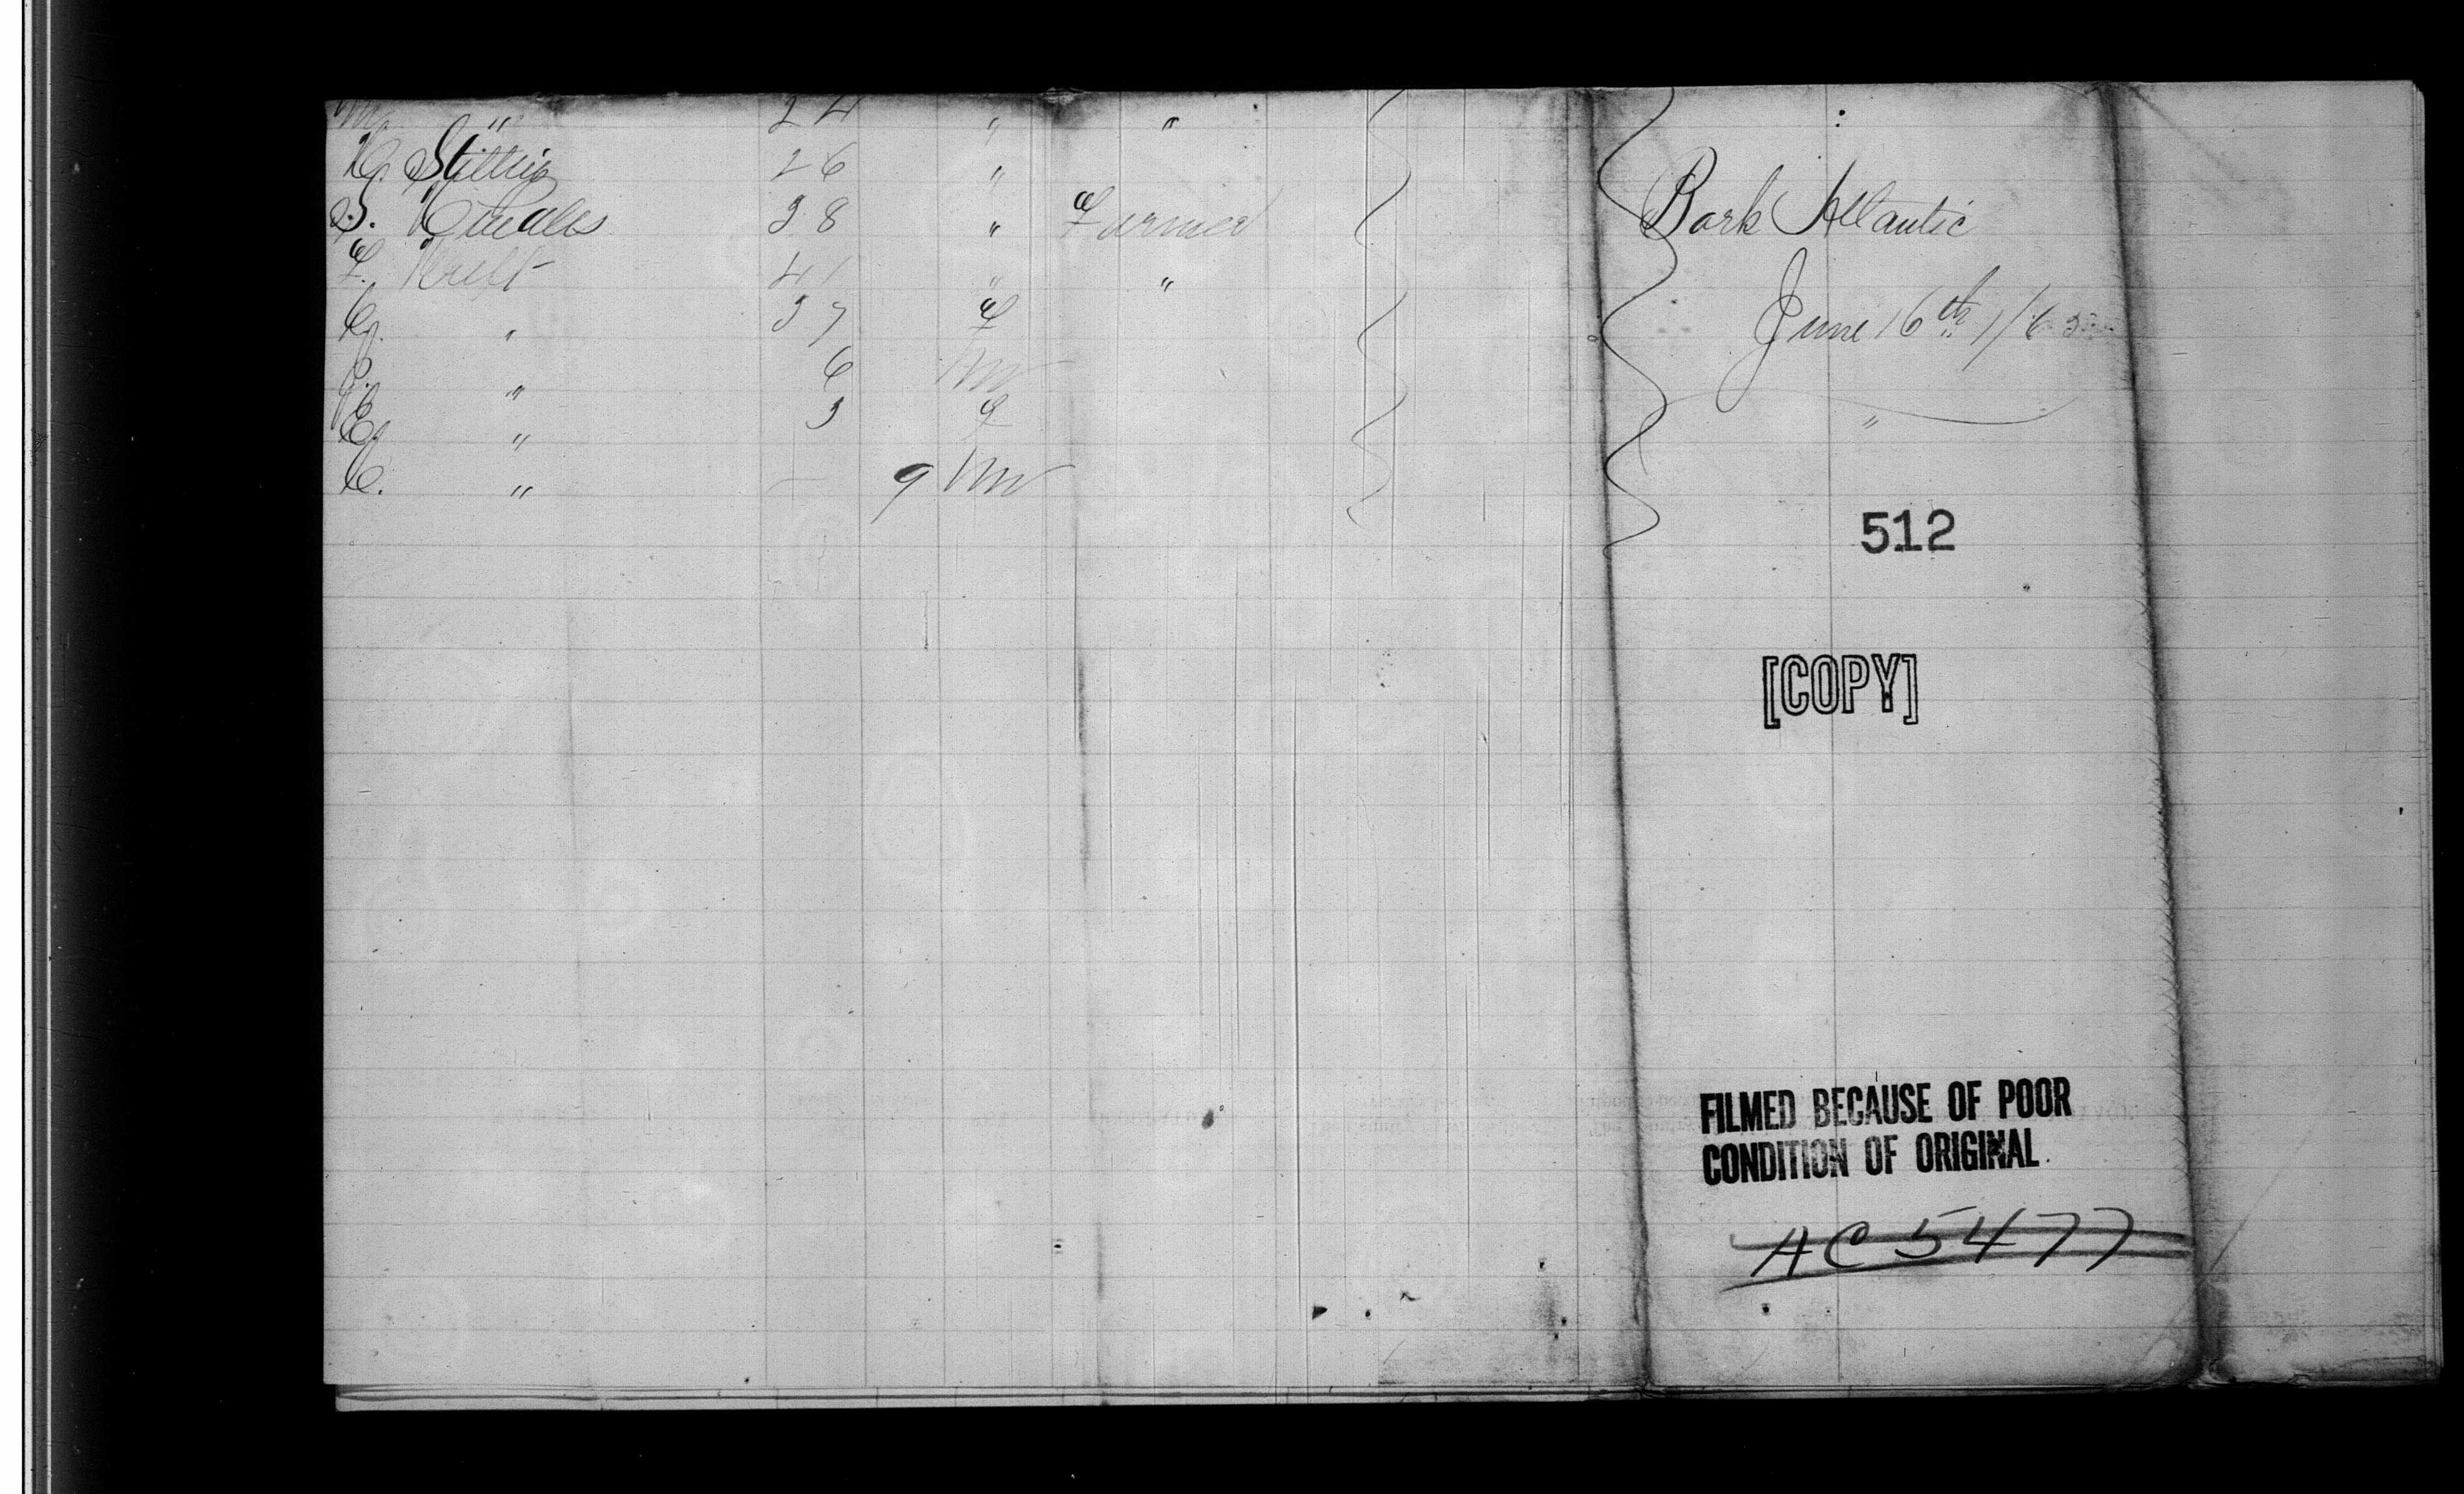 M. " 24 " "
H. Stillig 26 "
S. 38 " Farmer
F. 41 " "
C. " 37 F
J. " 6 M
E. " 3 F
C. " – 9 M
Bark Atlantic
June 16th
"
512
[COPY]
FILMED BECAUSE OF POOR
CONDITION OF ORIGINAL
AC 5477